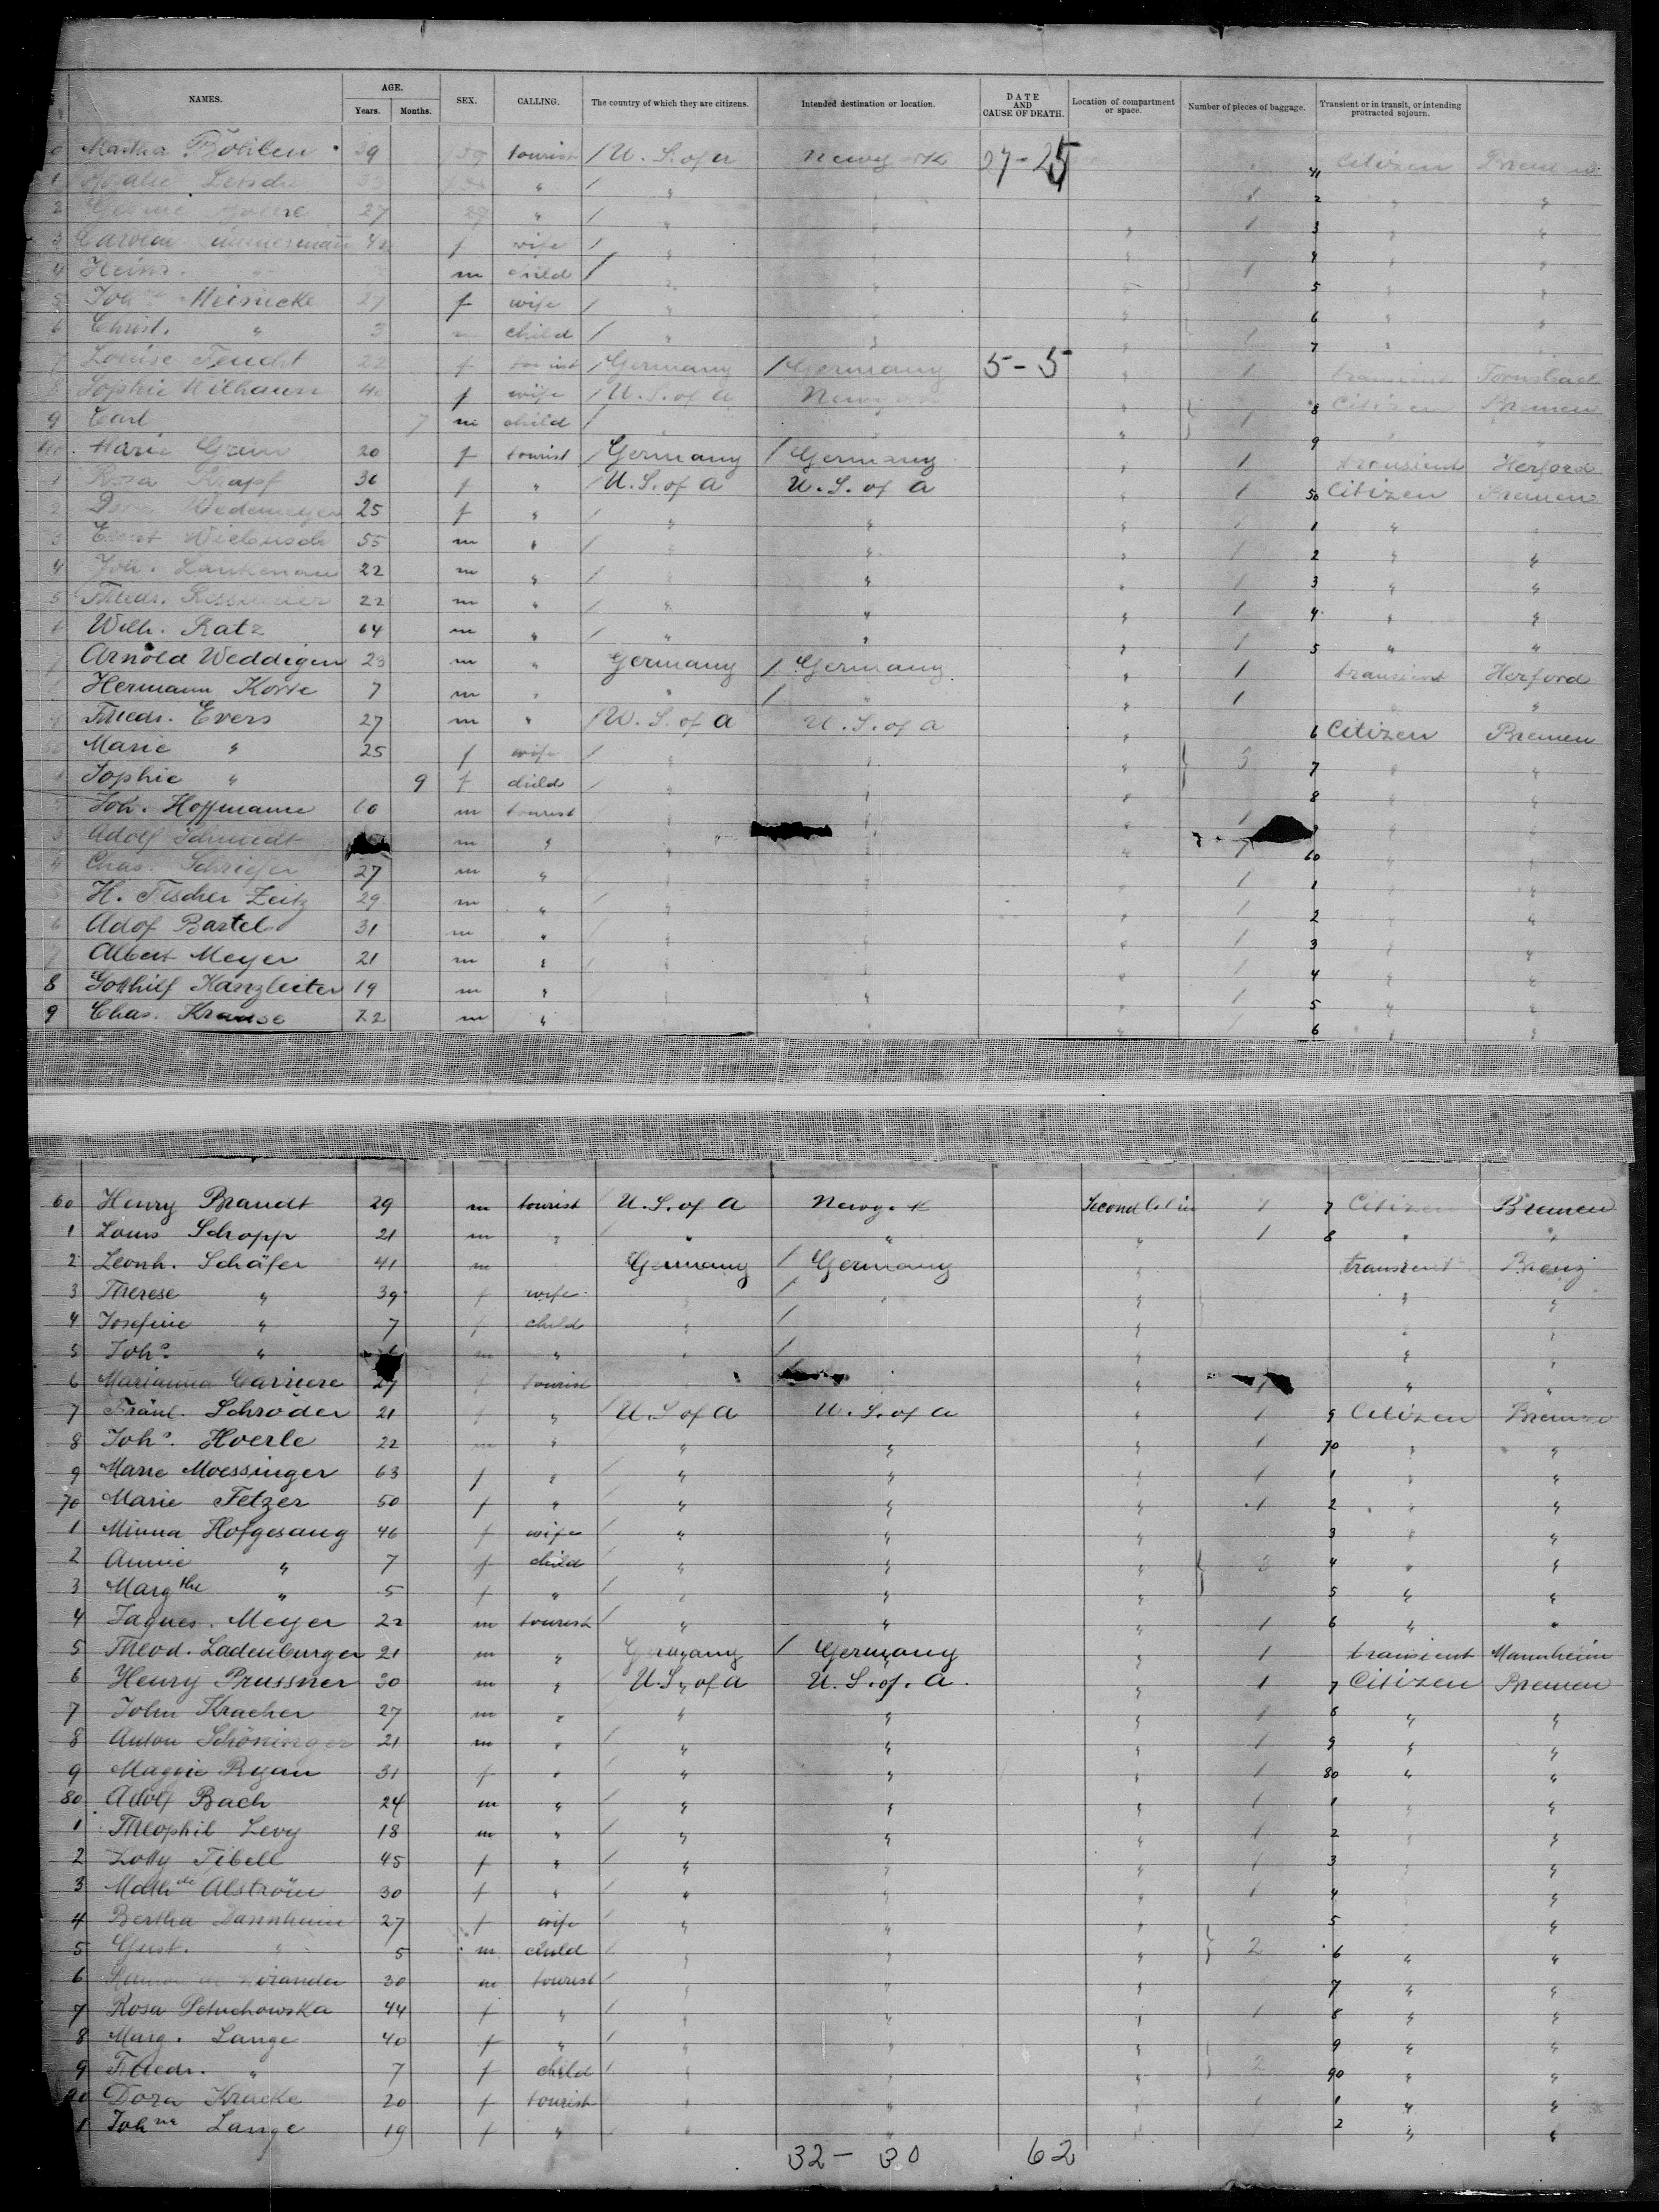 NAMES. AGE. Years. Months. SEX. CALLING. The country of which they are citizens. Intended destination or location. DATE AND CAUSE OF DEATH. Location of compartment or space. Number of pieces of baggage. Transient or in transit, or intending protracted sojourn.
0 Martha tourist / U. S. of a 27-25 41 Citizen Bremen
1 " / " 1 2 " "
2 27 " / " 1 3 " "
3 f wife / " " 4 " "
4 Heinr. m child / " 1 5 " "
5 Meinecke 27 f wife / " " 6 " "
6 Christ. " 3 child / " " 1 7 "
7 Louise Feucht 22 f tourist / Germany / Germany 5-5 " 1 transient
8 Sophie 40 f wife / U. S. of a " 8 Citizen Bremen
9 Carl 7 m child / " 1 9 " "
40 Marie Grün 20 f tourist / Germany / Germany " 1 transient Herford
1 Rosa Krapf 36 f " / U. S. of a U. S. of a " 1 50 Citizen Bremen
2 Wedemeyer 25 f " / " " " 1 1 " "
3 Ernst Wiebusch 55 m " / " " " 1 2 " "
4 Joh. Lankenau 22 m " / " " " 1 3 " "
5 Friedr. 22 m " / " " " 1 4 " "
6 Wilh. Ratz 64 m " / " " " 1 5 " "
7 Arnold Weddigen 23 m " Germany / Germany " 1 transient Herford
8 Hermann Korte 7 m " " / " " 1 " "
9 Friedr. Evers 27 m " / U. S. of a U. S. of a " 6 Citizen Bremen
50 Marie " 25 f wife / " " " 3 7 " "
1 Sophie " 9 f child / " " " 8 " "
2 Joh. Hoffmann m tourist / " " " 1 " "
3 Adolf Schmidt m " / " " " 1 60 " "
4 Chas. Schriefer 27 m " / " " " 1 1 " "
5 H. Fischer Zeitz 29 m " / " " " 1 2 " "
6 Adof Bartels 31 m " / " " " 1 3 " "
7 Albert Meyer 21 m " / " " " 1 4 " "
8 Gotthilf Kanzleiter 19 m " / " " " 1 5 " "
9 Chas. Krause 22 m " " " 6 " "
60 Henry Brandt 29 m tourist / U. S. of a Second 1 7 Citizen Bremen
1 Louis Schopp 21 m " / " " " 1 8 " "
2 Leonh. Schäfer 41 m Germany / Germany " transient
3 Therese " 39 f wife " / " " " "
4 Josefine " 7 f child " / " " "
5 Johs " m " " / " " "
6 Marianna Carriere 27 f tourist " 1 " "
7 Fräul. Schröder 21 f " / U. S. of a U. S. of a " 1 9 Citizen Bremen
8 Johs. Hoerle 22 m " / " " " 1 70 " "
9 Marie Moessinger 63 f " / " " " 1 1 " "
70 Marie Fetzer 50 f " / " " " 1 2 " "
1 Minna Hofgesang 46 f wife / " " " 3 " "
2 Annie " 7 f child / " " " 3 4 " "
3 Margthe " 5 f " / " " " 5 " "
4 Jaques. Meyer 22 m tourist / " " " 1 6 " "
5 Theod. Ladenburger 21 m " Germany / Germany " 1 transient Mannheim
6 Henry Prussner 30 m " U. S. of a U. S. of. a. " 1 7 Citizen Bremen
7 John Kracher 27 m " " " " 1 8 " "
8 Anton Schöninger 21 m " / " " " 1 9 " "
9 Maggie Ryan 31 f " / " " " 1 80 " "
80 Adolf Bach 24 m " / " " " 1 1 " "
1 Theophil Levy 18 m " / " " " 1 2 " "
2 Lotty Tibell 45 f " / " " " 1 3 " "
3 Mathde Alström 30 f " / " " " 1 4 " "
4 Bertha Dannheim 27 f wife / " " " 5 " "
5 Gust. " 5 m child / " " " 2 6 " "
6 30 m tourist / " " " 7 " "
7 Rosa Petuchowska 44 f " / " " " 1 8 " "
8 Marg. Lange 40 f " / " " " 9 " "
9 Friedr. " 7 f child / " " " 2 90 " "
90 Dora Kracke 20 f tourist / " " " 1 1 " "
1 Johne Lange 19 f " " " " 1 2 " "
32 - 30 62